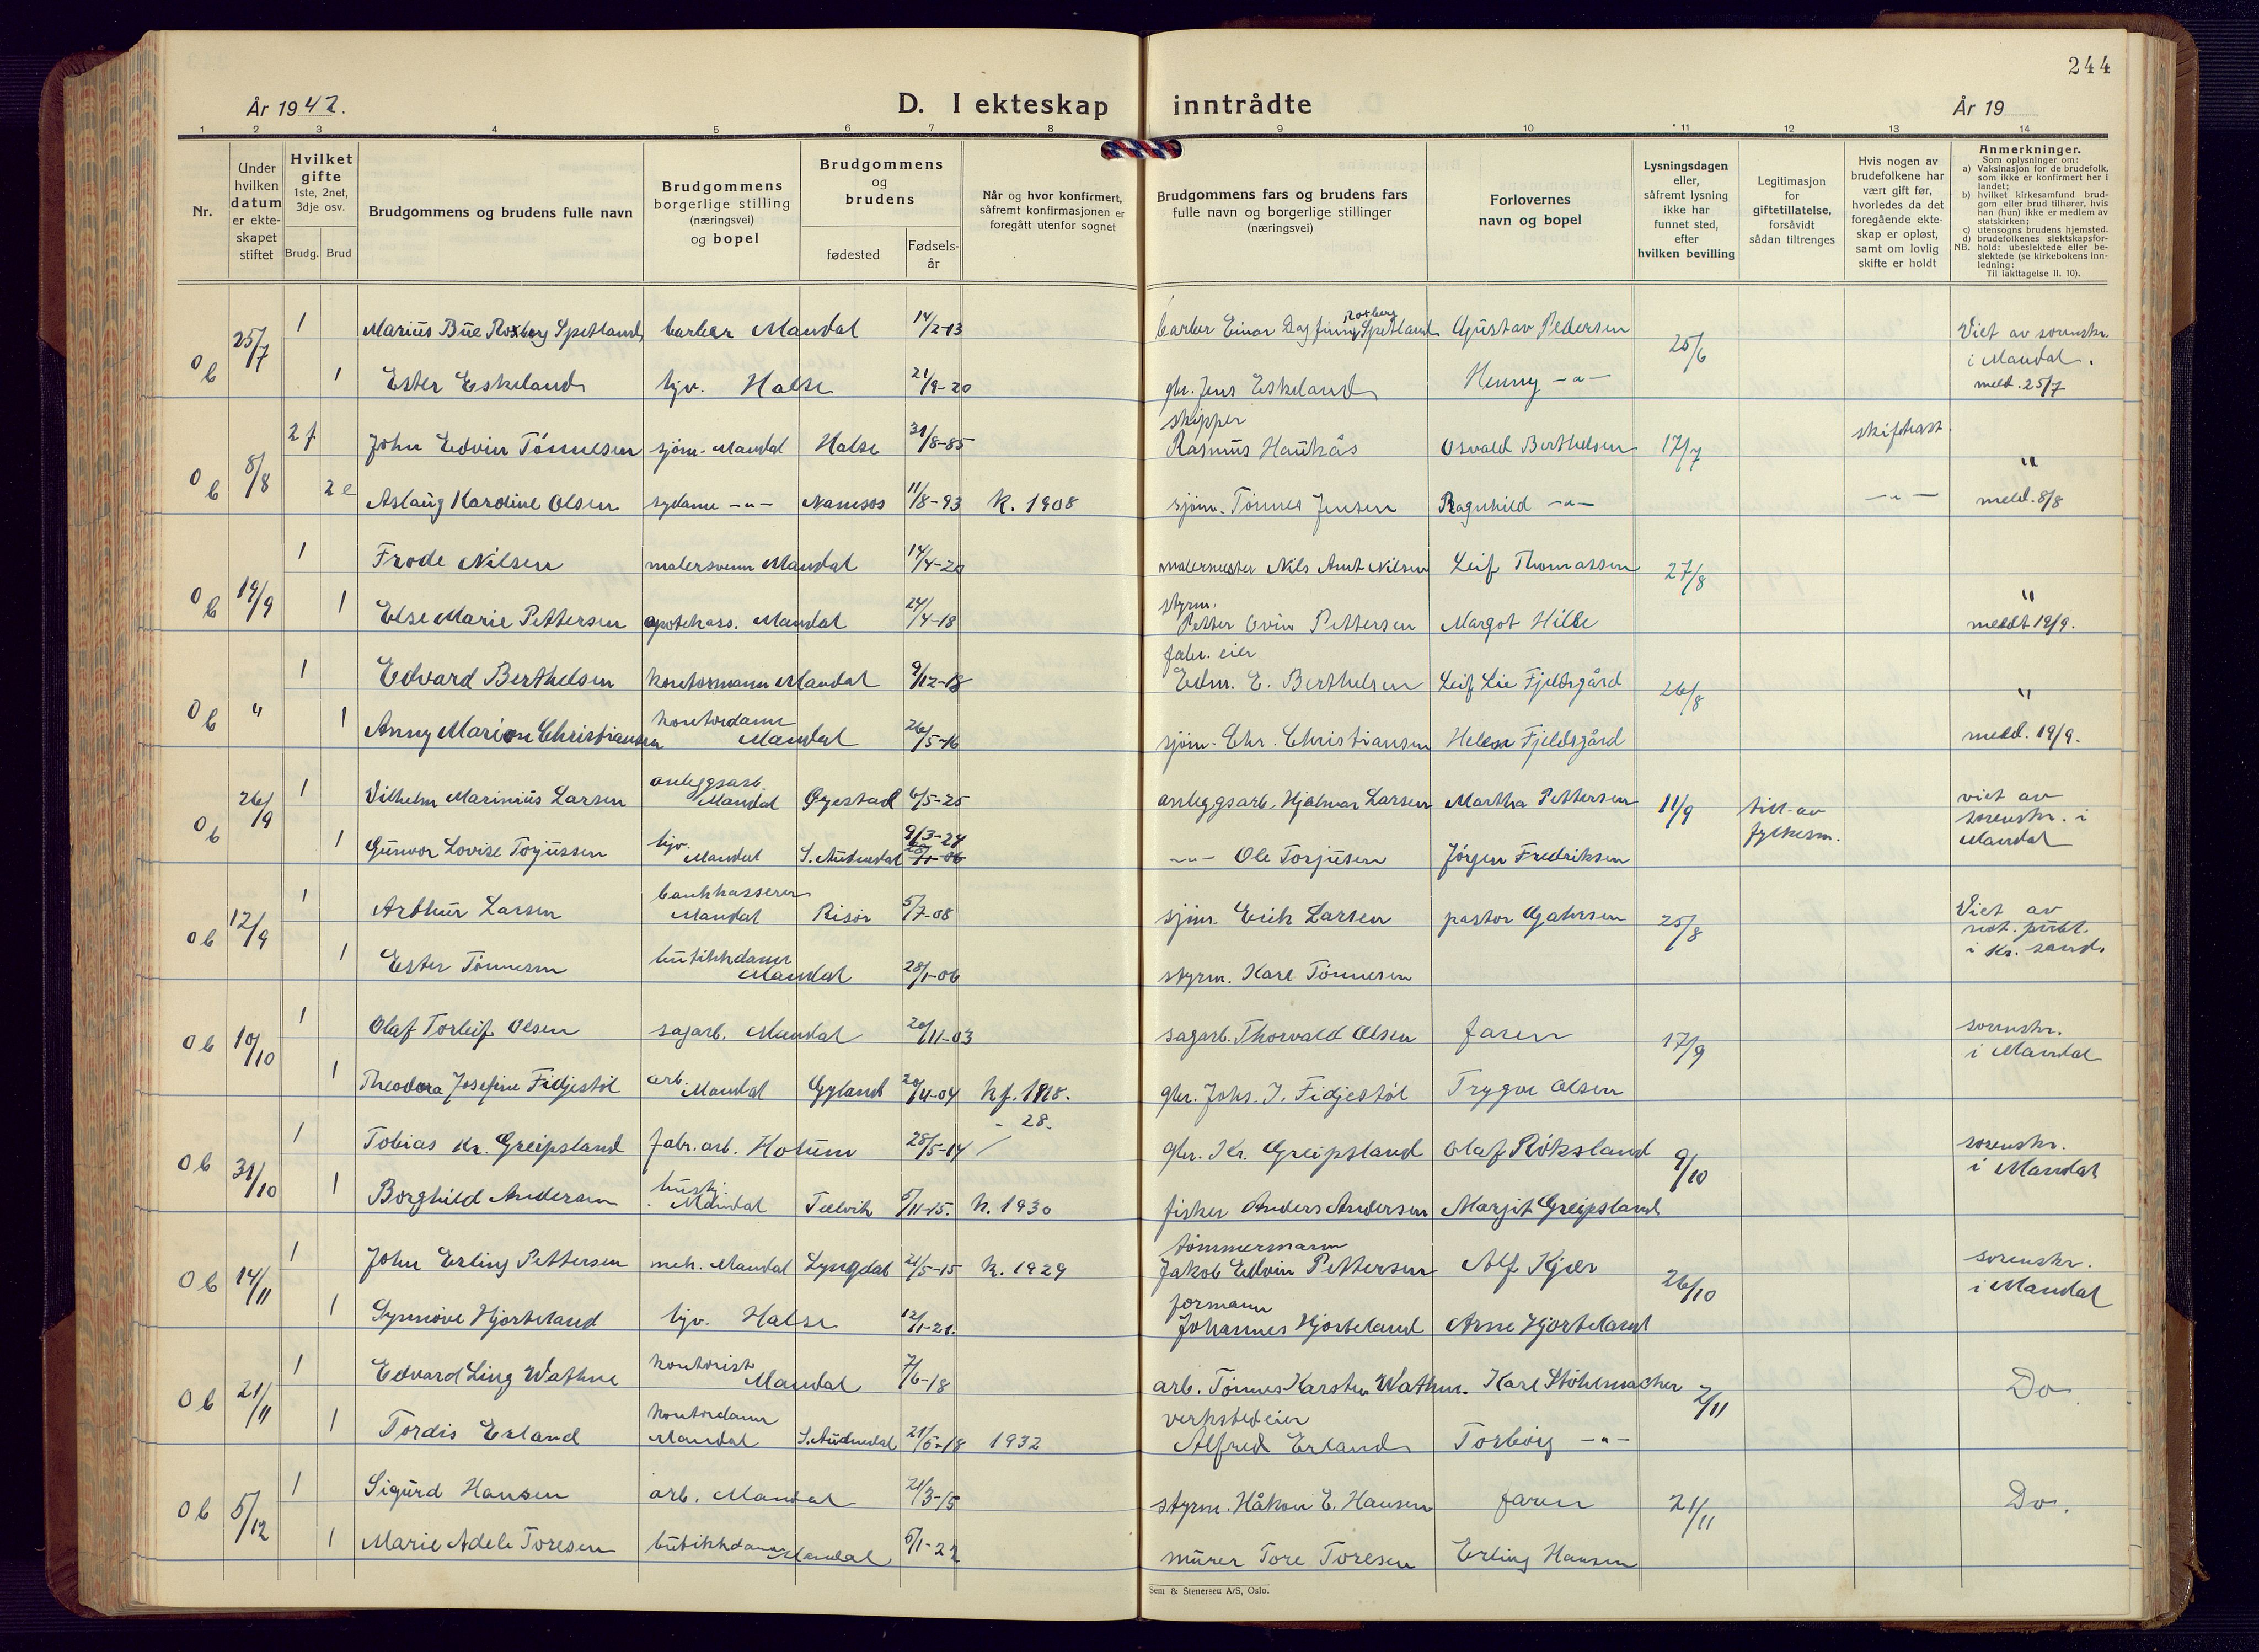 244
År 1942.
D. I ekteskap inntrådte
År 19
1 2 3 4 5 6 7 8 9 10 11 12 13 14
Nr.
Under hvilken datum er ekte-skapet stiftet
Hvilket gifte 1ste, 2net, 3dje osv.
Brudg. Brud
Brudgommens og brudens fulle navn
Brudgommens borgerlige stilling (næringsvei) og bopel
Brudgommens og brudens
fødested
Fødsels-år
Når og hvor konfirmert, såfremt konfirmasjonen er foregått utenfor sognet
Brudgommens fars og brudens fars fulle navn og borgerlige stillinger (næringsvei)
Forlovernes navn og bopel
Lysningsdagen eller, såfremt lysning ikke har funnet sted, efter hvilken bevilling
Legitimasjon for giftetillatelse, forsåvidt sådan tiltrenges
Hvis nogen av brudefolkene har vært gift før, hvorledes da det foregående ekte-skap er opløst, samt om lovlig skifte er holdt
Anmerkninger.
Som oplysninger om:
a) Vaksinasjon for de brudefolk, som ikke er konfirmert her i landet;
b) hvilket kirkesamfund brud-gom eller brud tilhører, hvis han (hun) ikke er medlem av statskirken;
c) utensogns brudens hjemsted.
d) brudefolkenes slektskapsfor-hold: ubeslektede eller be-slektede (se kirkebokens inn-ledning:
NB. Til iakttagelse II. 10).
Ob 25/7 1 Marius Bue Roxberg Spetland barber Mandal 14/2-13 barber Einar Dagfinn Roxberg Spetland Gustav Pedersen 25/6 Viet av sorenskr. i Mandal. meld. 25/7
1 Ester Eskeland hjv. Halse 21/9-20 gbr. Jens Eskeland Henny -"-
Ob 8/8 2 f John Edvin Tönnesen sjøm. Mandal Halse 31/8-85 skipper Rasmus Haukås Osvald Berthelsen 17/7 skifteatt. "
2 e Aslaug Karoline Olsen sydame -"- Namsos 11/8-93 K. 1908 sjøm. Tönnes Jensen Ragnhild -"- -"- meld. 8/8
Ob 19/9 1 Frode Nilsen malersvenn Mandal 14/4-20 malermester Nils Arnt Nilsen Leif Thomassen 27/8 "
1 Else Marie Pettersen apotekass. Mandal 24/4-18 styrm. Petter Ovin Pettersen Margot Hille meldt 19/9.
Ob " 1 Edvard Berthelsen kontormann Mandal 9/12-18 fabr. eier Edm. E. Berthelsen Leif Lie Fjeldsgård 26/8 "
1 Anny Marion Christiansen kontordame Mandal 26/5-16 sjøm. Chr. Christiansen Helene Fjeldsgård meld. 19/9.
Ob 26/9 1 Vilhelm Marinius Larsen anleggsarb. Mandal Øyestad 6/5-25 anleggsarb. Hjalmar Larsen Martha Pettersen 11/9 till. av fylkesm. viet av sorenskr. i Mandal
1 Gunvor Lovise Torjussen hjv. Mandal S. Audnedal 9/3-24 -"- Ole Torjusen Jörgen Fredriksen
Ob 12/9 1 Arthur Larsen bankkasserer Mandal Risör 5/7-08 sjöm. Erik Larsen pastor Gahrsen 25/8 Viet av not. publ. i Kr. sand.
1 Ester Tönnesen butikkdame Mandal 28/1-06 styrm. Karl Tönnesen
Ob 10/10 1 Olaf Torleif Olsen sagarb. Mandal 20/11-03 sagarb. Thorvald Olsen faren 17/9 sorenskr. i Mandal
1 Theodora Josefine Fidjestöl arb. Mandal Gyland 20/4-04 kf. 1918. gbr. Johs. J. Fidjestöl Trygve Olsen
Ob 31/10 1 Tobias Kr. Greipsland fabr. arb. Holum 28/5-14 - 28. gbr. Kr. Greipsland Olaf Röksland 9/10 sorenskr. i Mandal
1 Borghild Andersen hushj. Mandal Talvik 5/11-15. k. 1930 fisker Anders Andersen Margit Greipsland
Ob 14/11 1 John Erling Pettersen mek. Mandal Lyngdal 21/5-15 k. 1929 tömmermann Jakob Edvin Pettersen Alf Kjær 26/10 sorenskr. i Mandal
1 Synnöve Hjorteland hjv. Halse 12/11-21. formann Johannes Hjorteland Arne Hjorteland
Ob 21/11 1 Edvard Ling Wathne kontorist Mandal 7/6-18 arb. Tönnes Karsten Wathne. Karl Stöhlmacher 2/11 Do
1 Tordis Erland kontordame Mandal S. Audnedal 21/5-18 1932 verkstedeier Alfred Erland Torborg -"-
Ob 5/12 1 Sigurd Hansen arb. Mandal 21/3-15 styrm. Håkon E. Hansen faren 21/11 Do.
1 Marie Adele Toresen butikkdame Mandal 5/1-22 murer Tore Toresen Erling Hansen
Sem & Stenersen A/S, Oslo.